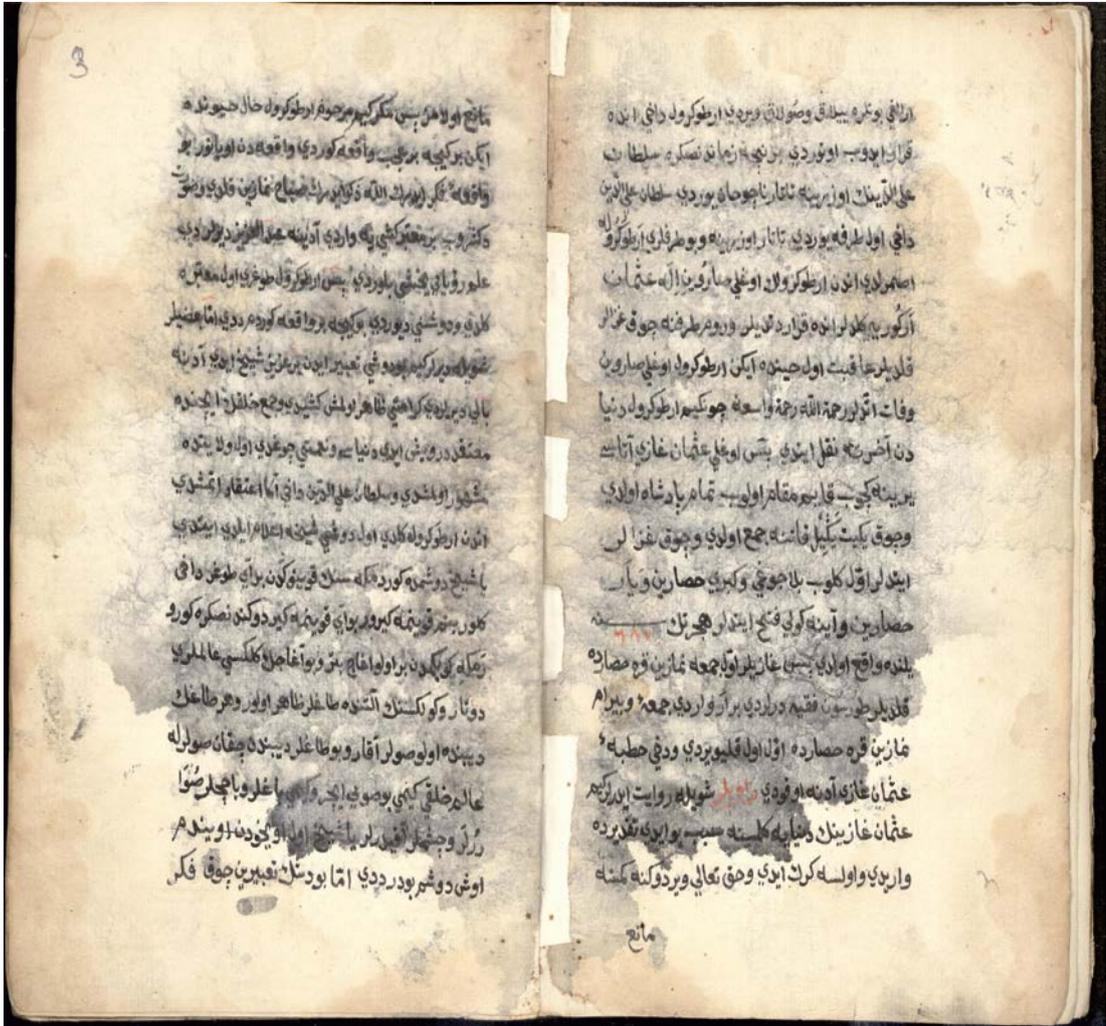 اراني بوغره ييلاق وصولاق ويردي ارطوكرول داخي انده
قرار ايدوب اوتوردي برنيجه زماندنصكره سلطان
على الدّينك اوزرينه تاتار ناجوجان يوردي سلطان على الدين
داخي اول طرفه يوردي تاتار اوزرينه وبو طرفلري ارطوكروله
اصمرلدي اندن ارطوكرولك اوغلي صاروين اله عثمان
كلديلر انده قرار دتديلر وروم طرفنه چوق غزالر
قلديلر عاقبت اول حينده ايكن ارطوكرول اوغلي صاروين
وفات اتديلر رحمة الله رحمة واسعة چونكيم ارطوكرول دنيا
دن آخرته نقل ايتدي پس اوغلي عثمان غازي آتاسي
يرينه كچوب قايم مقام اولوب تمام پادشاه اولدي
وچوق يكيت يكيل قاتنه جمع اولدي وچوق غزالر
ايتديلر اوّل كلوب بلاجوغي وكبري حصارين ويار
حصارين وآينه كولي فتح ايتديلر هجرتك سنه ٦٨٧
يلنده واقع اولدي پس غازيلر اوّل جمعه نمازين قره حصارده
قلديلر طورسون فقيه ديرلردي بر ار واردي جمعه وبيرام
نمازين قره حصارده اوّل اول قليويردي ودخي خطبه
عثمان غازي آدنه اوقودي راويلر شويله روايت ايدرلركيم
عثمان غازينك دنيايه كلسنه سبب بو ايدي تقديرده
واريدي واولسه كرك ايدي وحق تعالي ويردوكنه كمسنه
مانع
3
مانع اولماز پس مكركيم مرحوم ارطوكرول حال حيوتنده
ايكن بركيجه بر عجب واقعه كوردي واقعه دن اويانور بو
واقعه فكر ايدرك الله ذكر ايدرك صباح نمازين قلدي وصورت
دكشروب بر معتبر كشي يه واردي آدينه عبد العزيز ديرلردي
علم رؤيايي يخشي بلوردي پس ارطوكرول طوغري اول معتبره
كلدي ودوشني ديوردي بو كيجه بر واقعه كوردم ددي امّا بعضيلر
شويله ديرلركيم بو دوشي تعبير ايدن بر عزيز شيخ ايدي آدنه
بالي ديرلردي كرامتي ظاهر اولمش كشيدي وجمع خلق ايچنده
معتقد درويش ايدي دنياسي ونعمتي چوغدي اول ولايتده
مشهور اولمشدي وسلطان على الدين داخي آكا اعتقاد اتمشدي
اندن ارطوكرول كلدي اول دوشي شيخه اعلام ايلدي ايتدي
يا شيخ دوشمده كوردمكه سنك قوينكدن بر آي طوغر داخي
كلور بنم قوينمه كيرور بو آي قوينمه كيردوكندنصكره كورو
رمكه كوبكمدن بر اولو اغاج بتر وبو آغاجك كلكسي عالملري
دوتار وكولكسنك التنده طاغلر ظاهر اولور وهر طاغك
ديبنده اولو صولر آقار وبو طاغلر ديبندن چقان صولرله
عالم خلقي كيمي بو صويي ايچر وكيمي باغلر وباغچلر صُوَا
رُرلر وچشملر آقيدرلر يا شيخ اول اويخودن اويندم
اوش دوشم بودر ددي امّا بو دشك تعبيرين چوق فكر